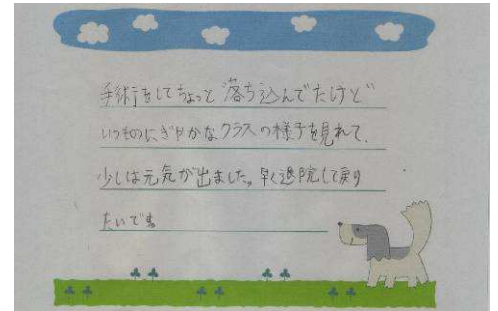 手術をしてちょっと落ち込んでたけど
いつものにぎやかなクラスの様子を見れて、
少しは元気が出ました。早く退院して戻り
たいです